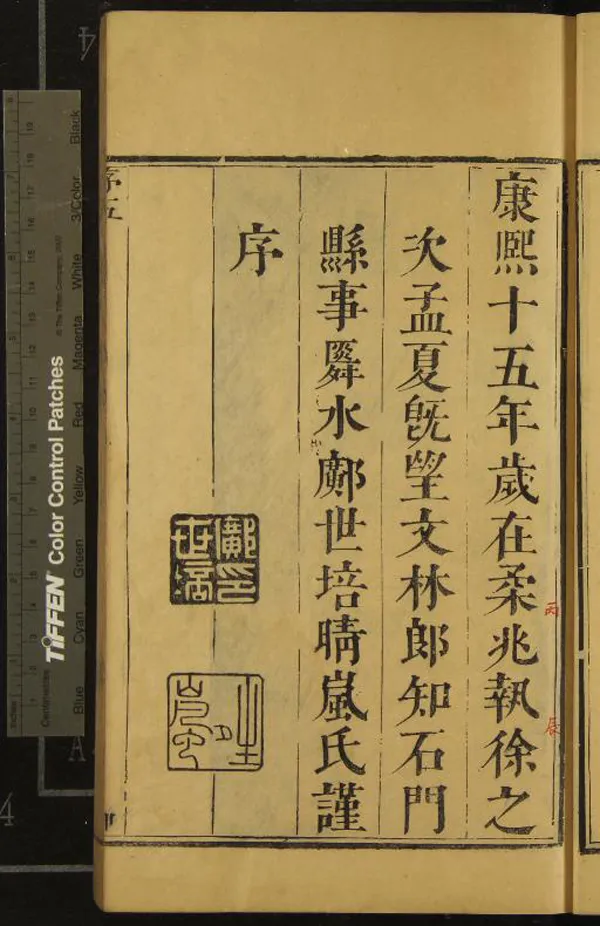 康熙十五年歲在柔兆執徐之
丙
辰
次孟夏旣望文林郎知石門
縣事舜水鄺世培晴嵐氏謹
序
序五
鄺世培印
TIFFEN Color Control Patches
© The Tiffen Company, 2000
Inches
Centimetres
Blue
Cyan
Green
Yellow
Red
Magenta
White
3/Color
Black
4
4
A